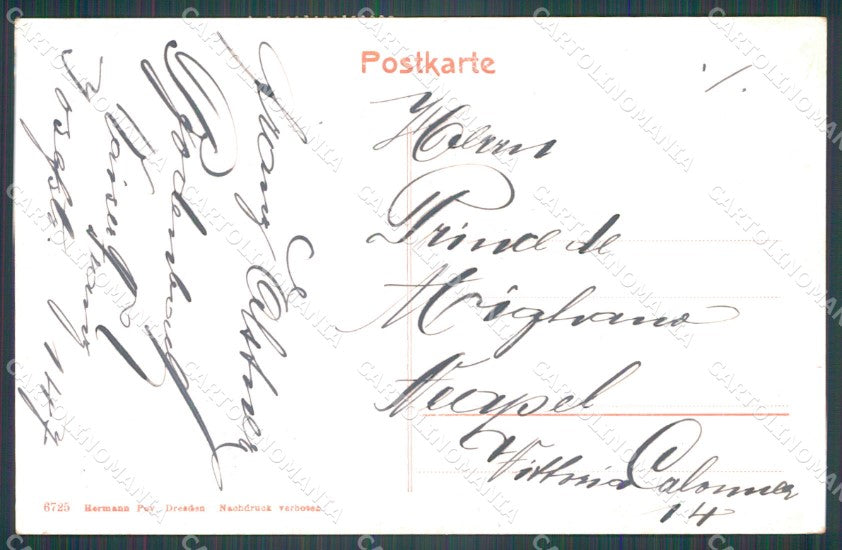 Postkarte
Herrn
Prince de
Migliano
Neapel
Vittoria Colonna
14
Franz Elstner
Bodenbach
147
6725 Hermann Poy, Dresden Nachdruck verboten.
CARTOLINOMANIA